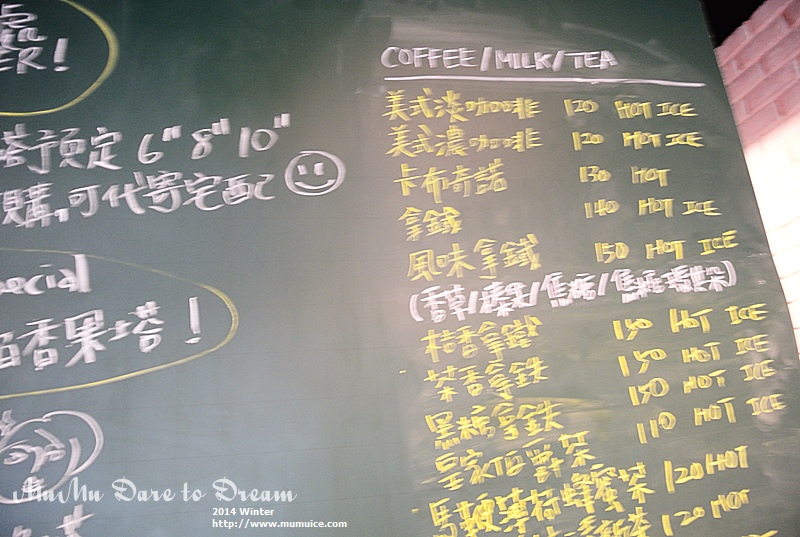 ER!
預定 6" 8" 10"
購,可代寄宅配
ecial
香果塔!
COFFEE/MILK/TEA
美式淡咖啡 120 HOT ICE
美式濃咖啡 120 HOT ICE
卡布奇諾 130 HOT
拿鐵 140 HOT ICE
風味拿鐵 150 HOT ICE
(香草/榛果/焦糖/焦糖瑪朵)
桔香拿鐵 150 HOT ICE
茶香拿鉄 150 HOT ICE
黑糖拿鉄 150 HOT ICE
皇家伯爵茶 110 HOT ICE
馬鞭薄荷蜂蜜茶 120 HOT
茶 120 HOT
MuMu Dare to Dream
2014 Winter
http://www.mumuice.com